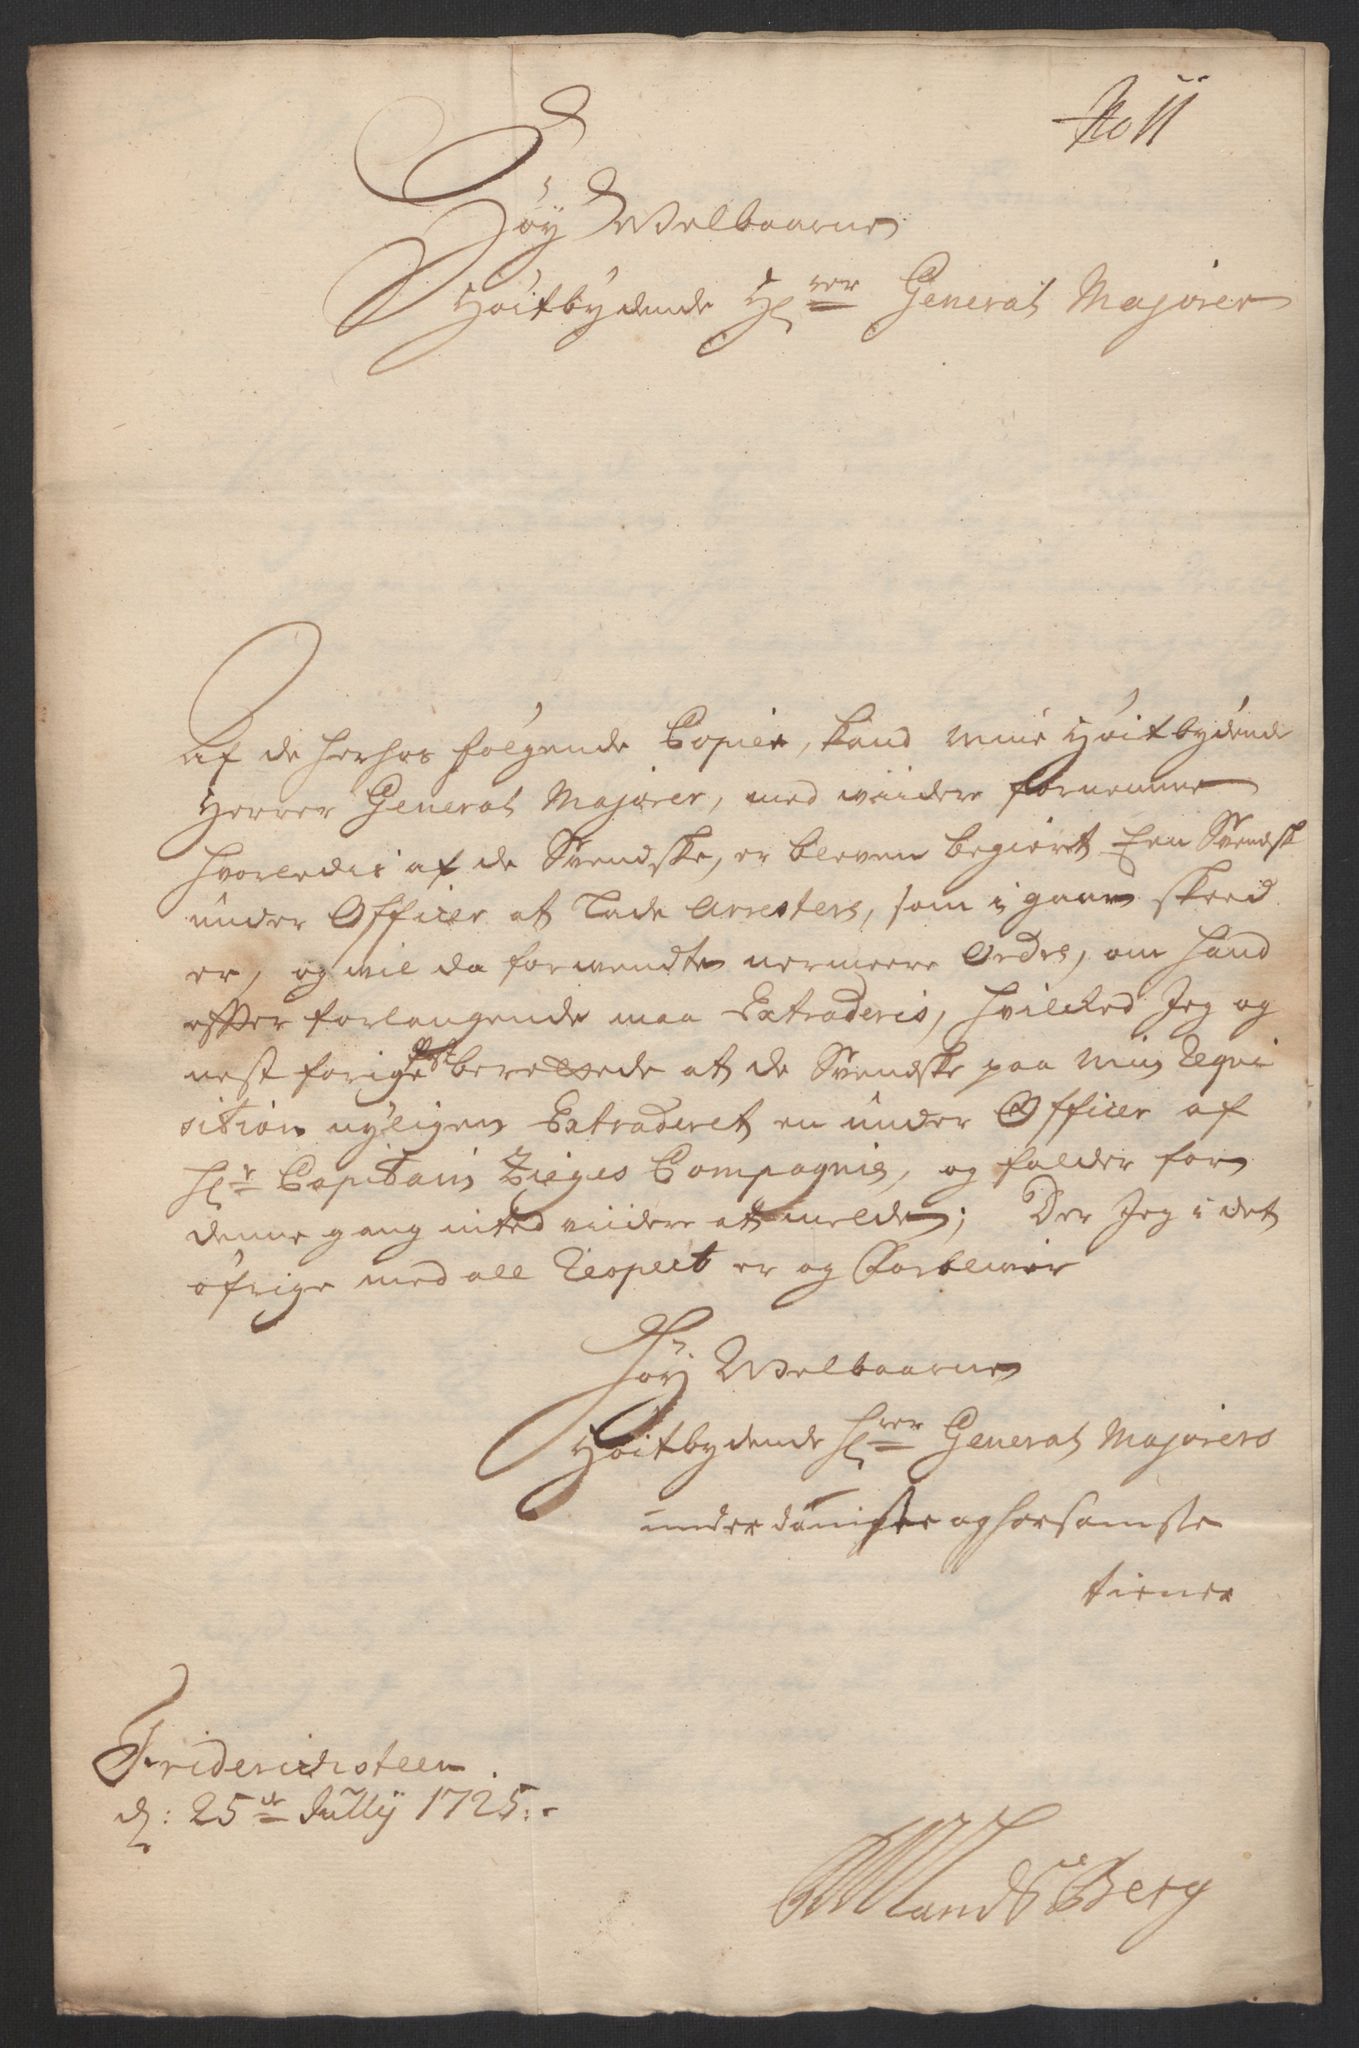 No 11
Høy Welbaarne
Høitbydende Hrer General Majorer
Af de herhos følgende Copier, kand mine Høitbydende
Herrer General Majorer, med viidere fornemme
hvorledis af de Svendske, er bleven begieret Een Svendsk
under Officer at lade Arrestere, som i gaar skeed
er, og vil da forvendte nermeere Ordre, om hand
efter forlangende maa Extraderis, hvilcked Jeg og
nest forige post berettede at de Svendske paa min Requi
sition nyligen Extraderet en under Officer af
Hr Capitain Zieges Compagnie, og falder for
denne gang inted viidere at melde; Der Jeg i det
øfrige med all Respect er og Forblivver
Høy Welbaarne
Høitbydende Hrer General Majorers
underdanigste og hørsamste
tiener
Friderichsteen
d: 25de Jully 1725.
LandsBerg